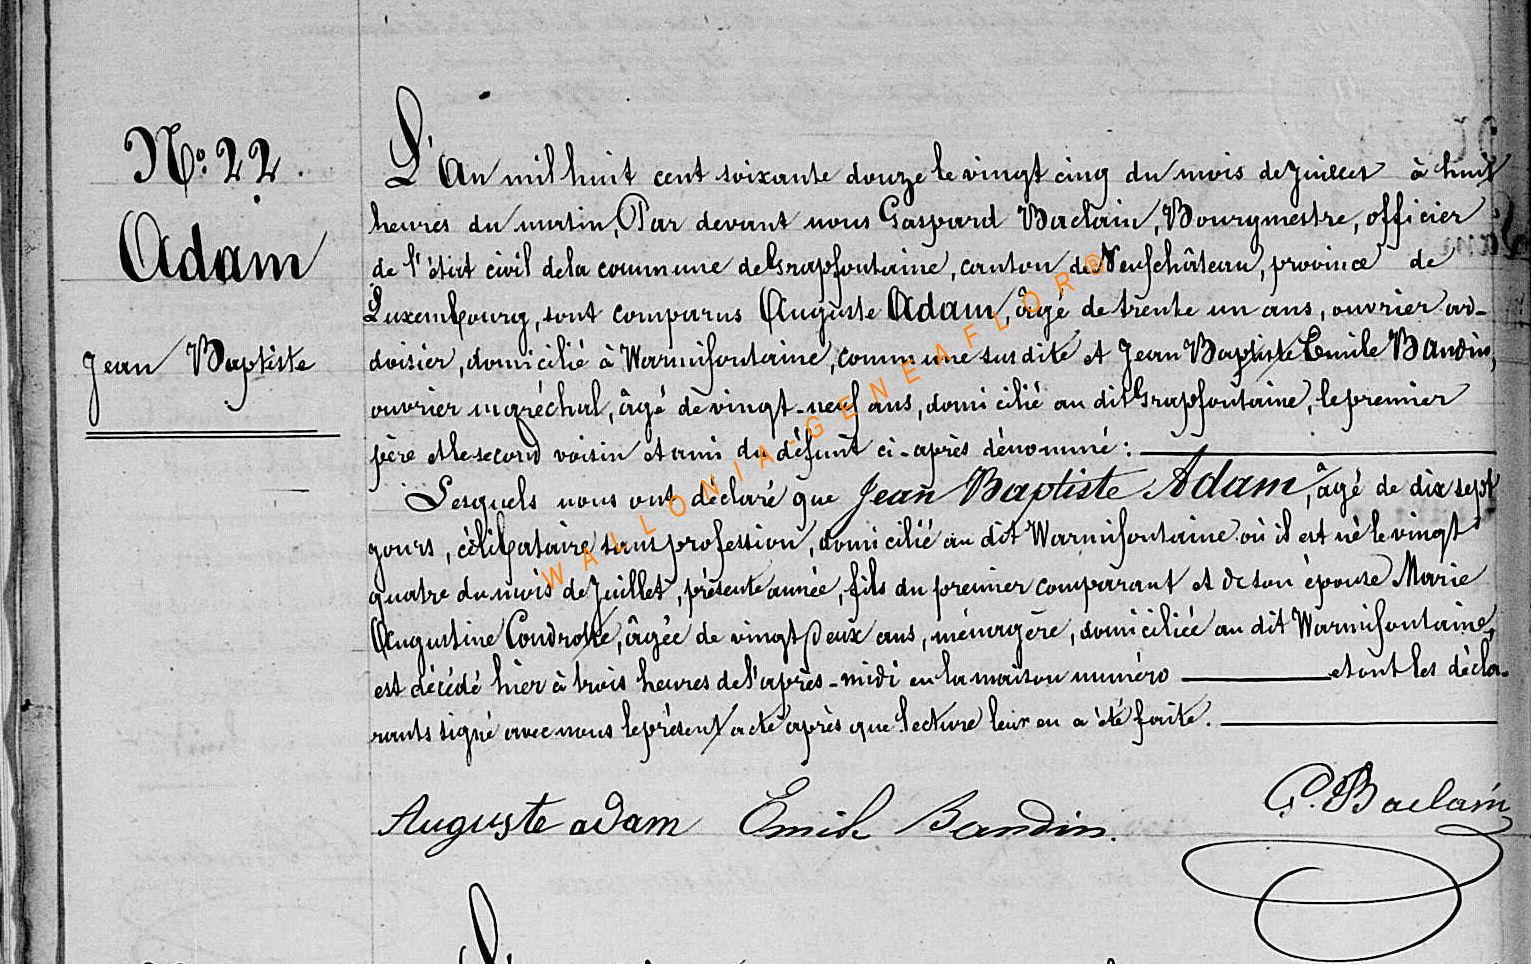 N.º 22.
Adam
Jean Baptiste
L'An mil huit cent soixante douze le vingt cinq du mois de Juillet à huit
heures du matin, Par devant nous Gaspard Baclain, Bourgmestre, officier
de l'état civil de la commune de Grapfontaine, canton de Neufchâteau, province de
Luxembourg, sont comparus Auguste Adam, âgé de trente un ans, ouvrier ar-
doisier, domicilié à Warmifontaine, commune susdite et Jean Baptiste Emile Bandin,
ouvrier maréchal, âgé de vingt-neuf ans, domicilié au dit Grapfontaine, le premier
père et le second voisin et ami du défunt ci-après dénommé :
Lesquels nous ont déclaré que Jean Baptiste Adam, âgé de dix sept
jours, célibataire sans profession, domicilié au dit Warmifontaine où il est né le vingt
quatre du mois de Juillet, présente année, fils du premier comparant et de son épouse Marie
Augustine, âgée de vingt deux ans, ménagère, domiciliée au dit Warmifontaine,
est décédé hier à trois heures de l'après-midi en la maison numéro et ont les décla-
rants signé avec nous le présent acte après que lecture leur en a été faite.
Auguste adam Emile Bandin. G. Baclain
WALLONIA-GENEAFLOR®